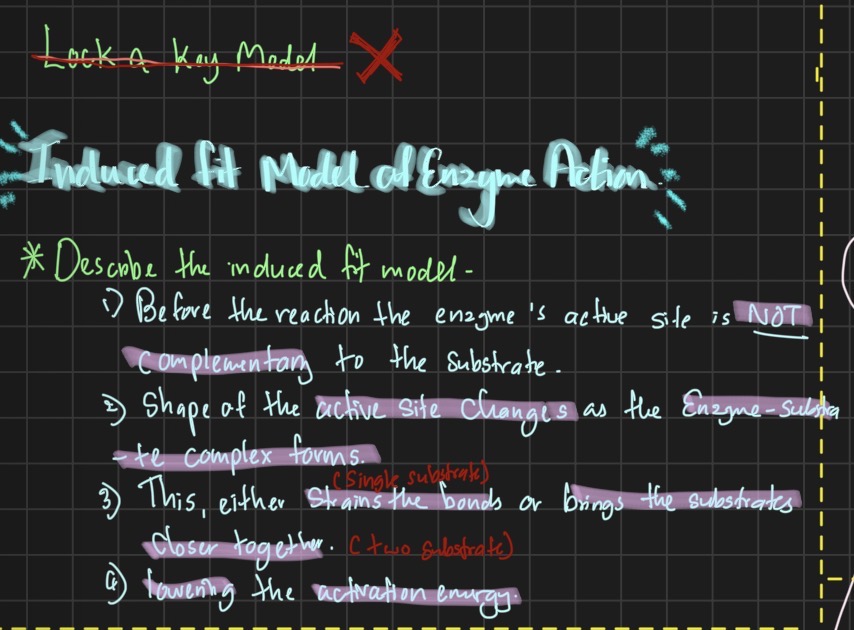 Lock & Key Model
Induced fit Model of Enzyme Action.
* Describe the induced fit model -
1) Before the reaction the enzyme's active site is NOT
complementary to the substrate.
2) Shape of the active site changes as the Enzyme-Substra
-te complex forms.
(single substrate)
3) This, either strains the bonds or brings the substrates
closer together. (two substrate)
4) lowering the activation energy.